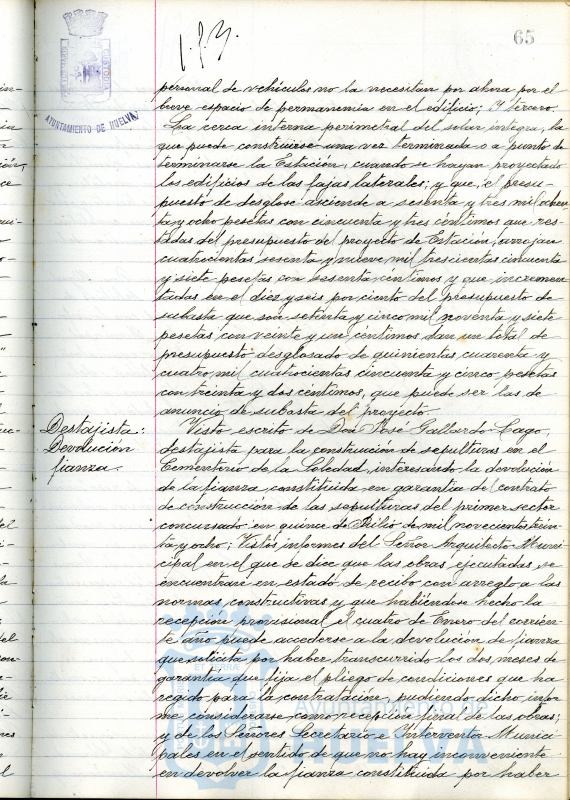 65
AYUNTAMIENTO DE HUELVA
personal de vehículos no la necesitan por ahora por el
breve espacio de permanencia en el edificio; Y tercero.
La cerca interna perimetral del solar integra, la
que puede construirse una vez terminada o a punto de
terminarse la Estación, cuando se hayan proyectado
los edificios de las fajas laterales; y que, el presu-
puesto de desglose asciende a sesenta y tres mil ochen-
ta y ocho pesetas con cincuenta y tres céntimos que res-
tadas del presupuesto del proyecto de Estación, arrojan
cuatrocientas sesenta y nueve mil trescientas cincuenta
y siete pesetas con sesenta céntimos y que incremen-
tadas en el diez y seis por ciento del presupuesto de
subasta que son setenta y cinco mil noventa y siete
pesetas con veinte y un céntimos dan un total de
presupuesto desglosado de quinientas cuarenta y
cuatro mil cuatrocientas cincuenta y cinco pesetas
con treinta y dos céntimos, que puede ser las de
anuncio de subasta del proyecto.
Destajista:
Devolución
fianza.
Visto escrito de Don José Gallardo Cago,
destajista para la construcción de sepulturas en el
Cementerio de la Soledad, interesando la devolución
de la fianza constituida en garantía del contrato
de construcción de las sepulturas del primer sector
concursado en quince de Julio de mil novecientos trein-
ta y ocho; Vistos informes del Señor Arquitecto Muni-
cipal en el que se dice que las obras ejecutadas, se
encuentran en estado de recibo con arreglo a las
normas constructivas y que habiéndose hecho la
recepción provisional el cuatro de Enero del corrien-
te año puede accederse a la devolución de fianza
que solicita por haber transcurrido los dos meses de
garantía que fija el pliego de condiciones que ha
regado para la contratación, pudiendo dicho infor-
me considerarse como recepción final de las obras;
y de los Señores Secretario e Interventor Munici-
pales en el sentido de que no hay inconveniente
en devolver la fianza constituida por haber
Ayuntamiento de
HUELVA